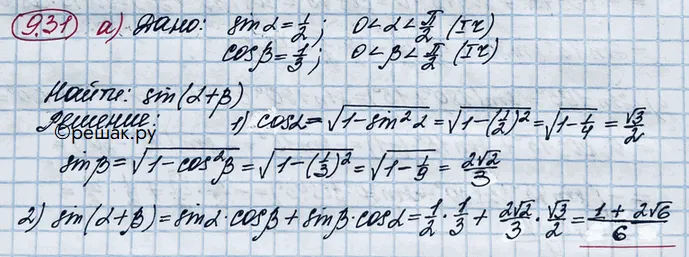 9.31 а) Дано: sin α = 1/2; 0 < α < π/2 (Iч)
cos β = 1/3; 0 < β < π/2 (Iч)
Найти: sin(α+β)
Решение: 1) cos α = √(1-sin²α) = √(1-(1/2)²) = √(1-1/4) = √3/2
©решак.ру
sin β = √(1-cos²β) = √(1-(1/3)²) = √(1-1/9) = 2√2/3
2) sin(α+β) = sin α · cos β + sin β · cos α = 1/2 · 1/3 + 2√2/3 · √3/2 = (1+2√6)/6